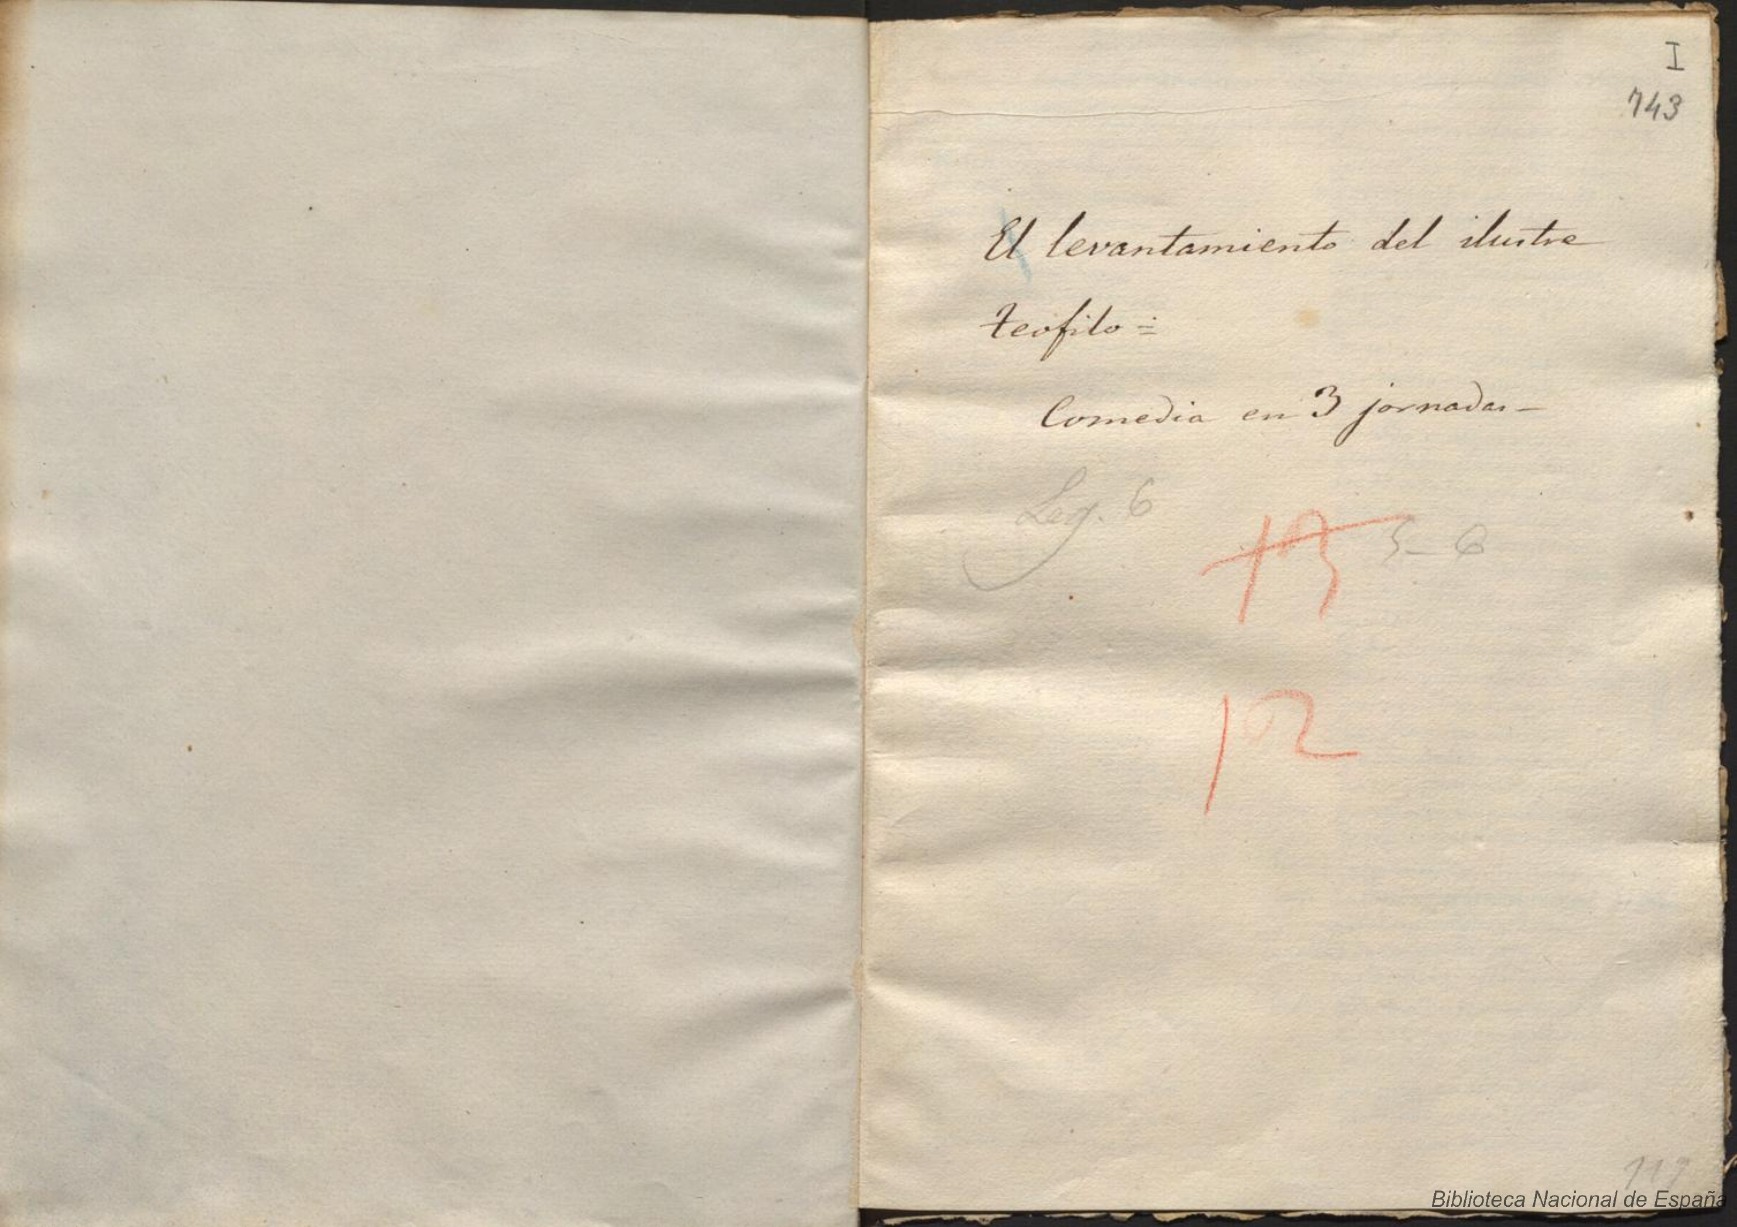 I
743
El levantamiento del ilustre
teofilo =
Comedia en 3 jornadas —
Leg. 6
13
12
Biblioteca Nacional de España